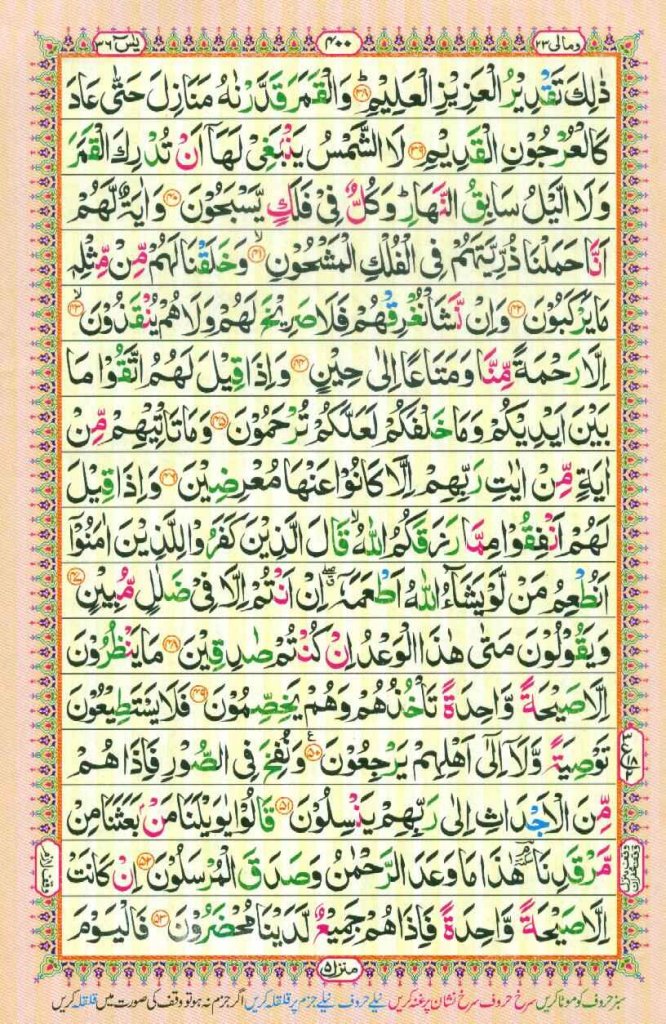 ومالی ۲۳
۴۰۰
یٰسٓ ۳۶
ذٰلِكَ تَقْدِيْرُ الْعَزِيْزِ الْعَلِيْمِؕ ۳۸ وَالْقَمَرَ قَدَّرْنٰهُ مَنَازِلَ حَتّٰى عَادَ
كَالْعُرْجُوْنِ الْقَدِيْمِ ۳۹ لَا الشَّمْسُ يَنْۢبَغِىْ لَهَاۤ اَنْ تُدْرِكَ الْقَمَرَ
وَلَا الَّيْلُ سَابِقُ النَّهَارِؕ وَكُلٌّ فِىْ فَلَكٍ يَّسْبَحُوْنَ ۴۰ وَاٰيَةٌ لَّهُمْ
اَنَّا حَمَلْنَا ذُرِّيَّتَهُمْ فِى الْفُلْكِ الْمَشْحُوْنِۙ ۴۱ وَخَلَقْنَا لَهُمْ مِّنْ مِّثْلِهٖ
مَا يَرْكَبُوْنَ ۴۲ وَاِنْ نَّشَاْ نُغْرِقْهُمْ فَلَا صَرِيْخَ لَهُمْ وَلَا هُمْ يُنْقَذُوْنَۙ ۴۳
اِلَّا رَحْمَةً مِّنَّا وَمَتَاعًا اِلٰى حِيْنٍ ۴۴ وَاِذَا قِيْلَ لَهُمُ اتَّقُوْا مَا
بَيْنَ اَيْدِيْكُمْ وَمَا خَلْفَكُمْ لَعَلَّكُمْ تُرْحَمُوْنَ ۴۵ وَمَا تَاْتِيْهِمْ مِّنْ
اٰيَةٍ مِّنْ اٰيٰتِ رَبِّهِمْ اِلَّا كَانُوْا عَنْهَا مُعْرِضِيْنَ ۴۶ وَاِذَا قِيْلَ
لَهُمْ اَنْفِقُوْا مِمَّا رَزَقَكُمُ اللّٰهُۙ قَالَ الَّذِيْنَ كَفَرُوْا لِلَّذِيْنَ اٰمَنُوْۤا
اَنُطْعِمُ مَنْ لَّوْ يَشَآءُ اللّٰهُ اَطْعَمَهٗۤ ۖ اِنْ اَنْتُمْ اِلَّا فِىْ ضَلٰلٍ مُّبِيْنٍ ۴۷
وَيَقُوْلُوْنَ مَتٰى هٰذَا الْوَعْدُ اِنْ كُنْتُمْ صٰدِقِيْنَ ۴۸ مَا يَنْظُرُوْنَ
اِلَّا صَيْحَةً وَّاحِدَةً تَاْخُذُهُمْ وَهُمْ يَخِصِّمُوْنَ ۴۹ فَلَا يَسْتَطِيْعُوْنَ
تَوْصِيَةً وَّلَاۤ اِلٰٓى اَهْلِهِمْ يَرْجِعُوْنَ ۵۰ ع وَنُفِخَ فِى الصُّوْرِ فَاِذَا هُمْ
مِّنَ الْاَجْدَاثِ اِلٰى رَبِّهِمْ يَنْسِلُوْنَ ۵۱ قَالُوْا يٰوَيْلَنَا مَنْۢ بَعَثَنَا مِنْ
مَّرْقَدِنَاۘ هٰذَا مَا وَعَدَ الرَّحْمٰنُ وَصَدَقَ الْمُرْسَلُوْنَ ۵۲ اِنْ كَانَتْ
اِلَّا صَيْحَةً وَّاحِدَةً فَاِذَا هُمْ جَمِيْعٌ لَّدَيْنَا مُحْضَرُوْنَ ۵۳ فَالْيَوْمَ
منزل ۵
سبز حروف کو موٹا کریں سرخ حروف سرخ نشان پر غنہ کریں نیلے حروف نیلے جزم پر قلقلہ کریں اگر جزم نہ ہو تو وقف کی صورت میں قلقلہ کریں